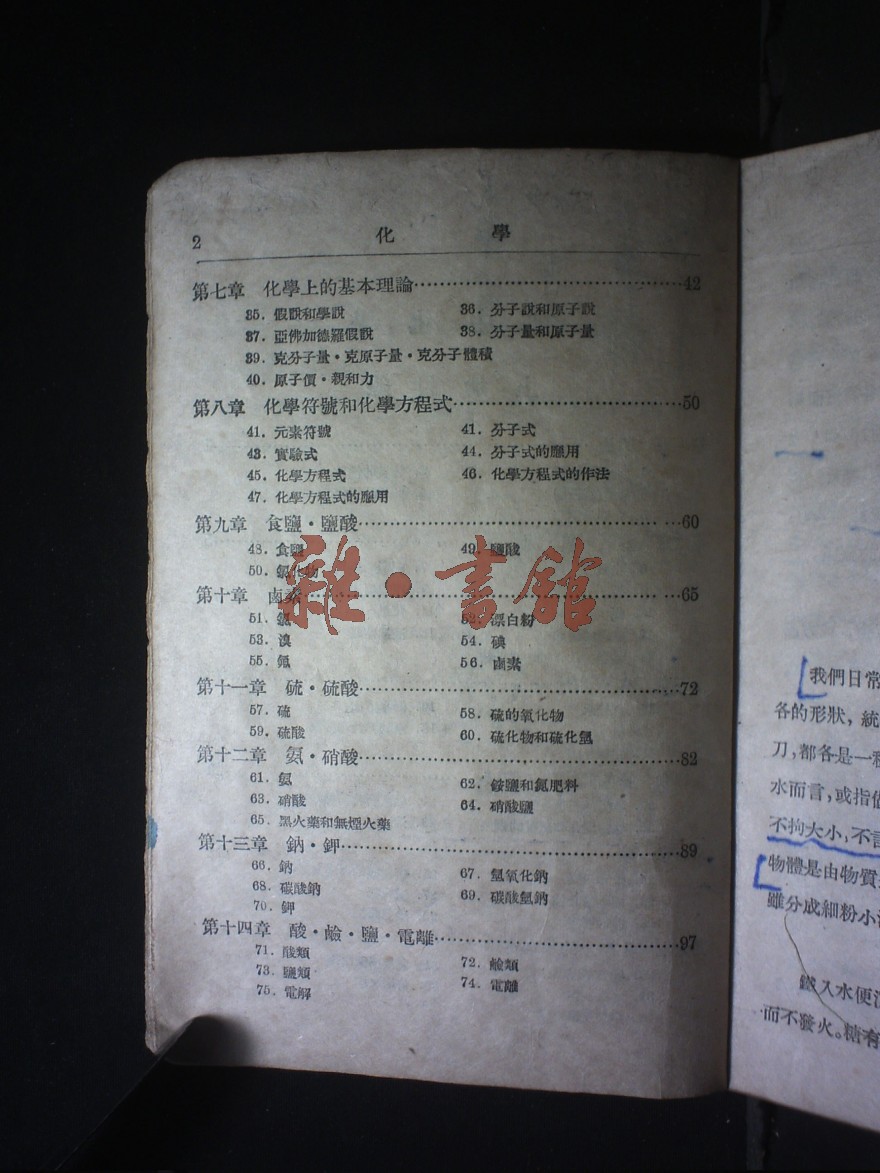 2 化 學
第七章 化學上的基本理論……42
35. 假說和學說 36. 分子說和原子說
37. 亞佛加德羅假說 38. 分子量和原子量
39. 克分子量・克原子量・克分子體積
40. 原子價・親和力
第八章 化學符號和化學方程式……50
41. 元素符號 41. 分子式
43. 實驗式 44. 分子式的應用
45. 化學方程式 46. 化學方程式的作法
47. 化學方程式的應用
第九章 食鹽・鹽酸……60
48. 食鹽 49. 鹽酸
50. 氯化物
第十章 鹵素……65
51. 氯 52. 漂白粉
53. 溴 54. 碘
55. 氟 56. 鹵素
第十一章 硫・硫酸……72
57. 硫 58. 硫的氧化物
59. 硫酸 60. 硫化物和硫化氫
第十二章 氨・硝酸……82
61. 氨 62. 銨鹽和氮肥料
63. 硝酸 64. 硝酸鹽
65. 黑火藥和無煙火藥
第十三章 鈉・鉀……89
66. 鈉 67. 氫氧化鈉
68. 碳酸鈉 69. 碳酸氫鈉
70. 鉀
第十四章 酸・鹼・鹽・電離……97
71. 酸類 72. 鹼類
73. 鹽類 74. 電離
75. 電解
雜・書館
我們日常
各的形狀，統
刀，都各是一種
水而言，或指
不拘大小，不言
物體是由物質
雖分成細粉小
鹽入水便
而不發火。糖有